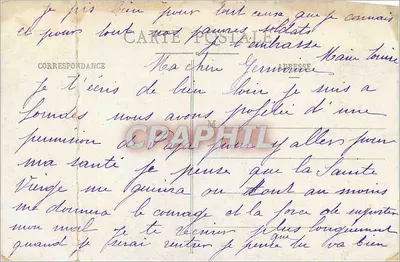 je pris bien pour tout ceux que je connais
et pour tout nos pauvres soldats
CARTE POSTALE
je t'embrasse
Marie Louise
CORRESPONDANCE
ADRESSE
Ma chère Germaine
Je t'écris de bien loin je suis a
Lourdes nous avons profitée d'une
permission de Papa pour y aller pour
ma santé je pense que la Sainte
Vierge me guérira ou tout au moins
me donnera le courage et la force de supporter
mon mal je te écrirer plus longuement
quand je serai rentrer je pense que tu va bien
CPAPHIL